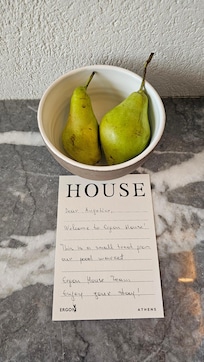 HOUSE
Dear
Welcome to Ergon House!
This is a small treat from
our
Ergon House Team
Enjoy your stay!
ERGON
ATHENS